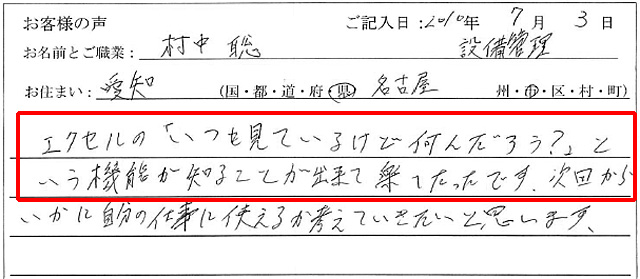 お客様の声 ご記入日：2010年 7月 3日
お名前とご職業： 村中 聡 設備管理
お住まい： 愛知 （国・都・道・府・県） 名古屋 州・市・区・村・町）
エクセルの「いつも見ているけど何んだろう？」と
いう機能が知ることが出来て楽でたったです、次回から
いかに自分の仕事に使えるか考えていきたいと思います、